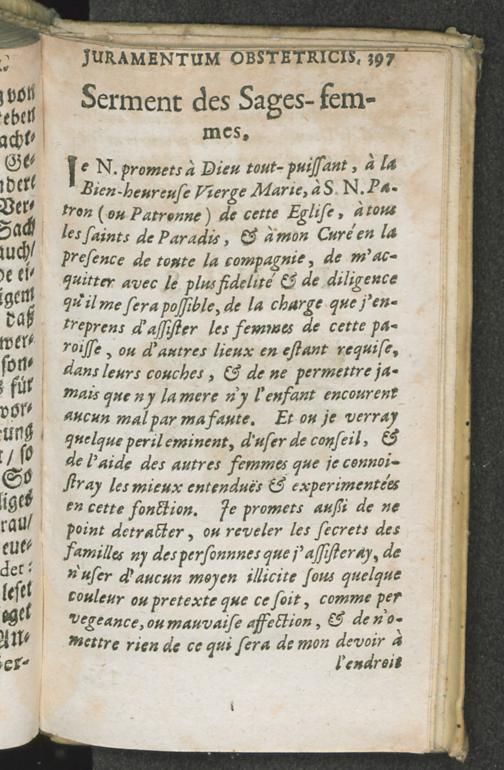 JURAMENTUM OBSTETRICIS. 397
Serment des Sages-fem-
mes.
Ie N. promets à Dieu tout-puiſſant, à la
Bien-heureuſe Vierge Marie, à S. N. Pa-
tron (ou Patronne) de cette Egliſe, à tous
les ſaints de Paradis, & à mon Curé en la
preſence de toute la compagnie, de m'ac-
quitter avec le plus fidelité & de diligence
qu'il me ſera poſſible, de la charge que j'en-
treprens d'aſſiſter les femmes de cette pa-
roiſſe, ou d'autres lieux en eſtant requiſe,
dans leurs couches, & de ne permettre ja-
mais que ny la mere n'y l'enfant encourent
aucun mal par ma faute. Et ou je verray
quelque peril eminent, d'uſer de conſeil, &
de l'aide des autres femmes que je connoi-
ſtray les mieux entenduës & experimentées
en cette fonction. Je promets auſſi de ne
point detracter, ou reveler les ſecrets des
familles ny des perſonnnes que j'aſſiſteray, de
n'uſer d'aucun moyen illicite ſous quelque
couleur ou pretexte que ce ſoit, comme per
vegeance, ou mauvaiſe affection, & de n'o-
mettre rien de ce qui ſera de mon devoir à
l'endroit
von
teben
acht-
Ge-
ndere
Ver-
Sach
auch/
de ei-
igem
daß
wer-
ſon-
für
vor-
rung
t/ ſo
So
liges
rau/
eue-
det:
leſet
eget
An-
der-